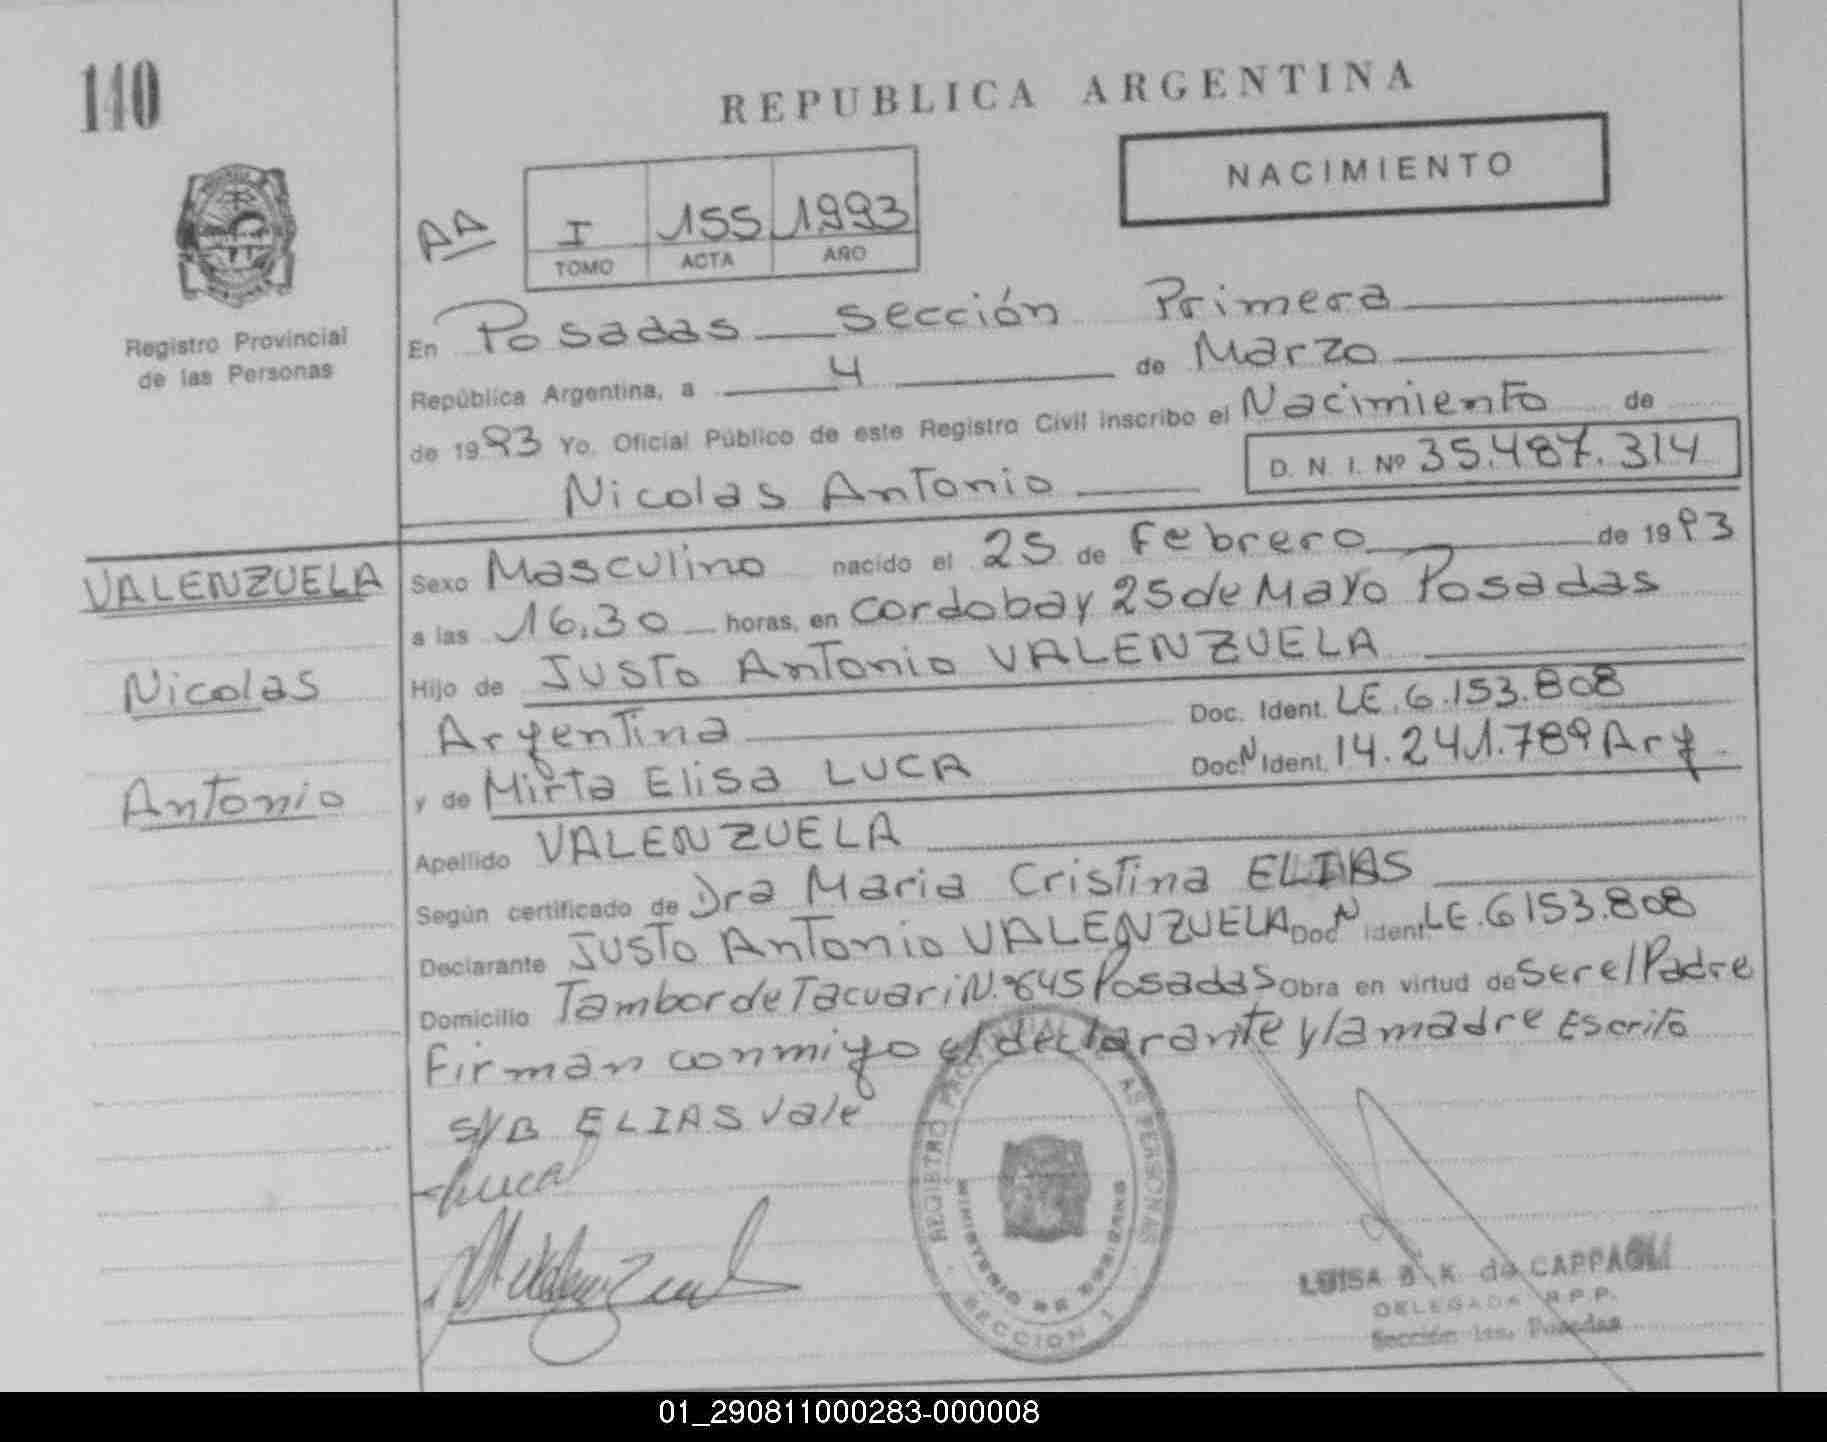 140
REPUBLICA ARGENTINA
NACIMIENTO
AA
I 155 1993
TOMO ACTA AÑO
Registro Provincial
de las Personas
En Posadas sección Primera
República Argentina, a 4 de Marzo
de 1993 Yo. Oficial Público de este Registro Civil inscribo el Nacimiento de
Nicolas Antonio D. N. I. Nº 35.487.314
VALENZUELA
Nicolas
Antonio
Sexo Masculino nacido el 25 de Febrero de 1993
a las 16,30 horas, en Cordoba y 25 de Mayo Posadas
Hijo de Justo Antonio VALENZUELA
Argentina Doc. Ident. LE.6.153.808
y de Mirta Elisa LUCA Doc. N Ident. 14.241.789 Arg.
Apellido VALENZUELA
Según certificado de Dra Maria Cristina ELIAS
Declarante Justo Antonio VALENZUELA Doc N Ident LE.6153.808
Domicilio Tambor de Tacuari N. 645 Posadas Obra en virtud de Ser el Padre
Firman conmigo el declarante y la madre Escrito
S/B ELIAS Vale
Luca
REGISTRO PROVINCIAL DE LAS PERSONAS
MINISTERIO DE GOBIERNO
SECCION 1
LUISA B. K. de CAPPAGLI
DELEGADA R.P.P.
Sección 1ra. Posadas
01_290811000283-000008